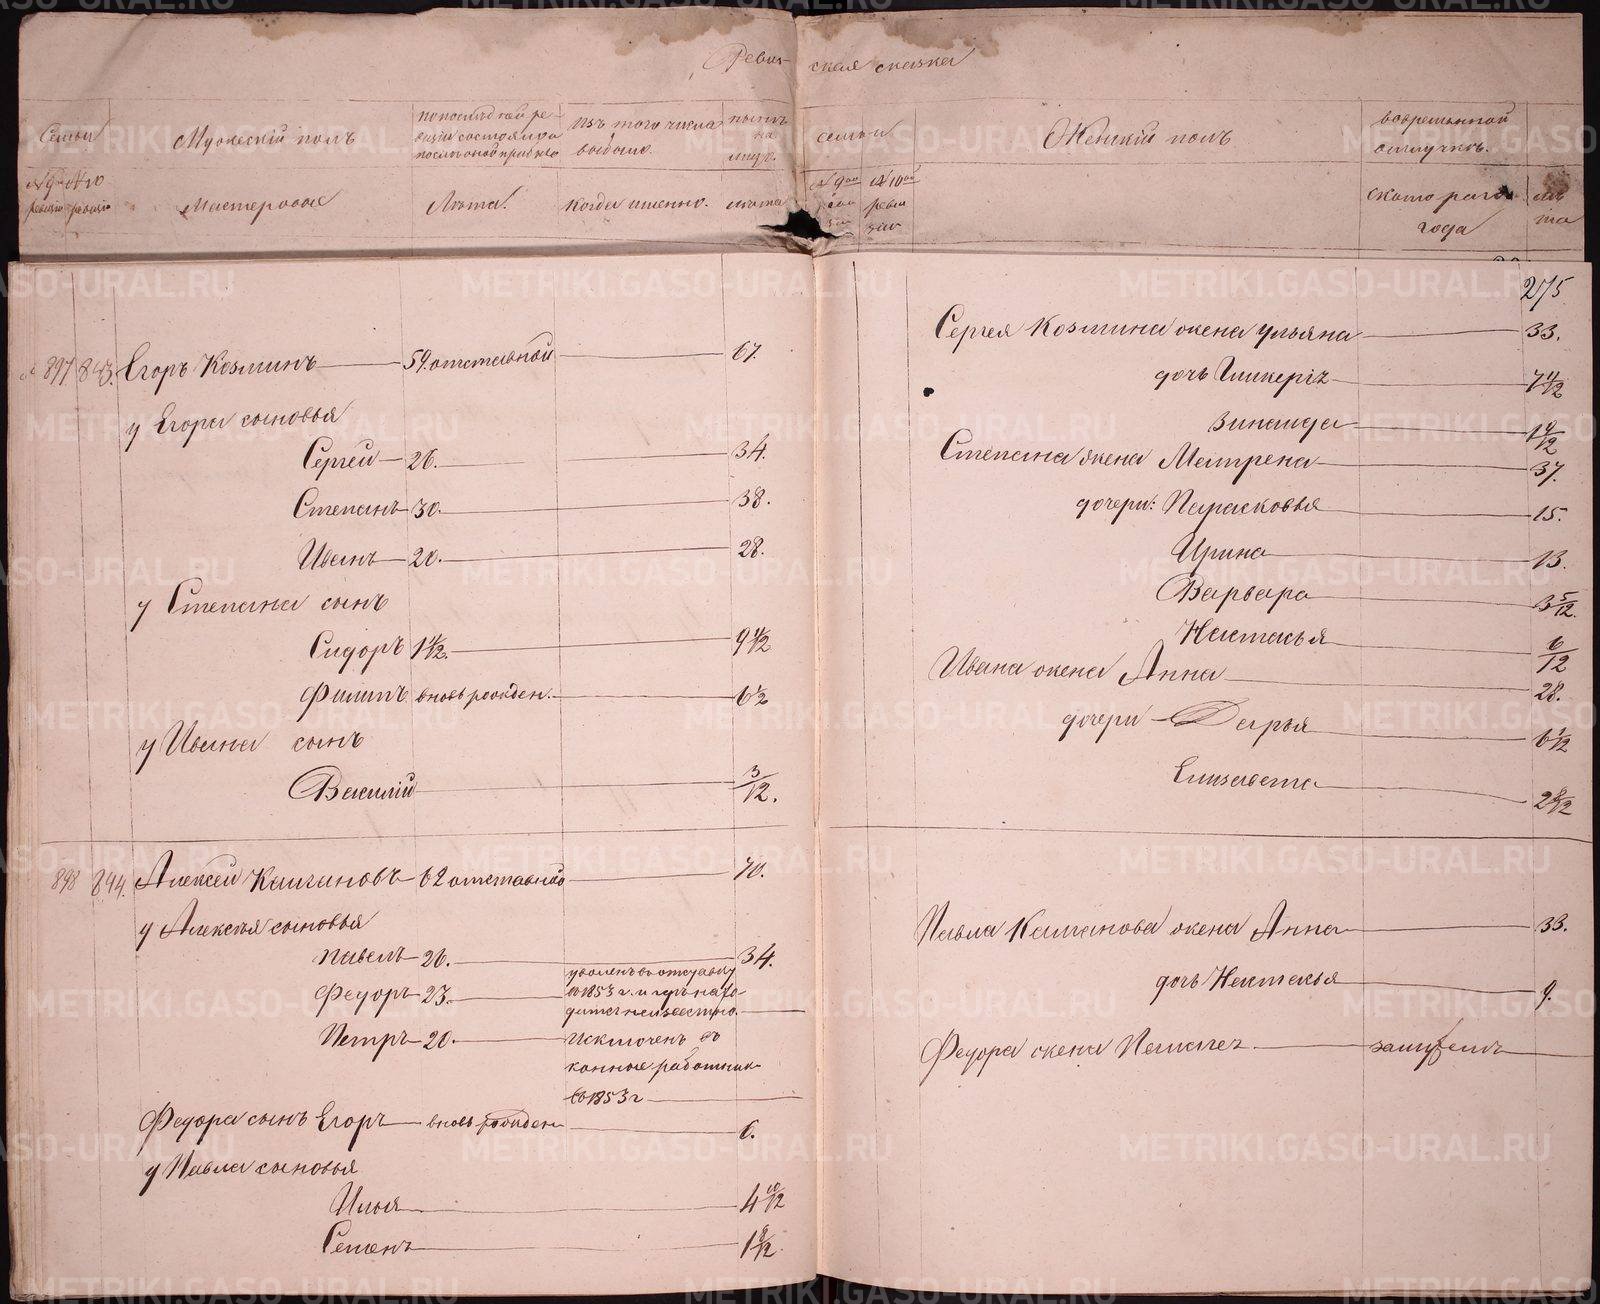 Ревизская сказка
Семьи
Мужескій полъ
по последней ревизіи состояло и после оной прибыло
Изъ того числа выбыло.
ныне на лицо.
семьи
Женскій полъ
во временной отлучке.
№ 9й ревизіи
№ 10 ревизіи
Мастеровые
Лѣта.
Когда именно.
лѣта
№ 9ой ревизіи
№ 10ой ревизіи
Съ котораго года
лѣта
275
897 843. Егоръ Козминъ 59. отставной 67.
у Егора сыновья
Сергей 26. 34.
Степанъ 30. 38.
Иванъ 20. 28.
у Степана сынъ
Сидоръ 1 4/12. 9 4/12
Филипъ вновь рожден. 6 1/2
у Ивана сынъ
Василій 3/12.
898 844. Алексей Калгановъ 62 отставной 70.
у Алексея сыновья
Павелъ 26. 34.
Федоръ 23. уволенъ въ отставку въ 1853 г. и где находится неизвестно.
Петръ 20. Исключенъ въ конные работники въ 1853 г
Федора сынъ Егоръ вновь рожден 6.
у Павла сыновья
Илья 4 10/12
Семенъ 1 9/12.
Сергея Козмина жена Ульяна 33.
дочь Гликерія 7 11/12
Зинаида 1 9/12
Степана жена Матрена 37.
дочери: Парасковья 15.
Ирина 13.
Варвара 3 5/12.
Настасья 6/12
Ивана жена Анна 28.
дочери Дарья 6 1/12
Елизавета 2 8/12
Павла Калганова жена Анна 33.
дочь Настасья 9.
Федора жена Пелагея замужемъ
METRIKI.GASO-URAL.RU